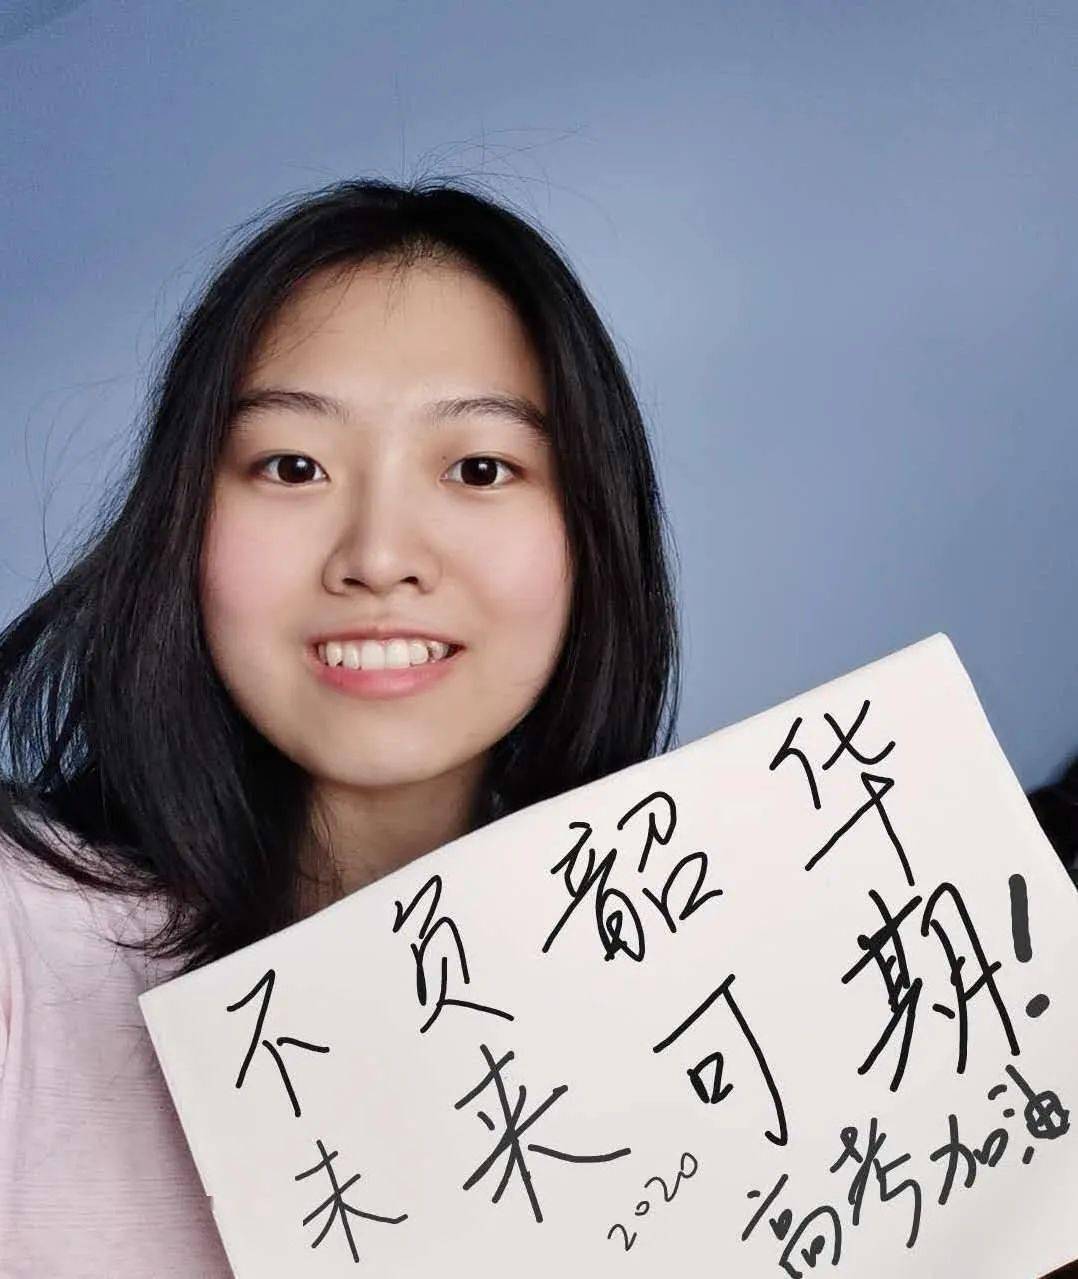 不负韶华
未来可期！
2020高考加油